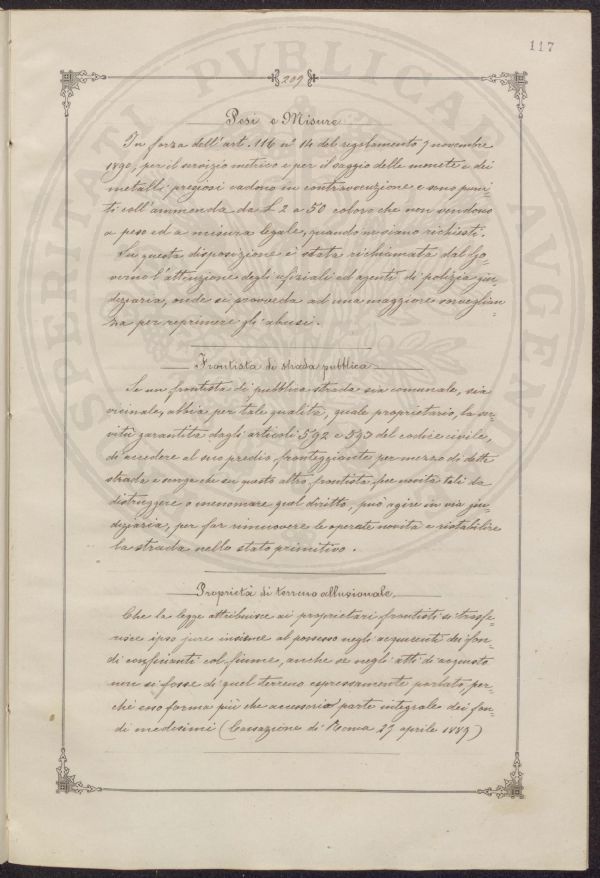 117
209
Pesi e Misure
In forza dell'art. 116 n.º 14 del regolamento 7 novembre
1890, per il servizio metrico e per il saggio delle monete e dei
metalli preziosi cadono in contravvenzione e sono puni=
ti coll'ammenda da £ 2 a 50 coloro che non vendono
a peso ed a misura legale, quando ne siano richiesti.
Su questa disposizione è stata richiamata dal Go=
verno l'attenzione degli ufiziali ed agenti di polizia giu=
diziaria, onde si provveda ad una maggiore sorveglian=
za per reprimere gli abusi.
Frontista di strada pubblica
Se un frontista di pubblica strada sia comunale, sia
vicinale, abbia per tale qualità, quale proprietario, la ser=
vitù garantita dagli articoli 592 e 593 del codice civile,
di accedere al suo predio, fronteggiante per mezzo di detta
strada e sorge che su posto altro frontista fece novità tali da
distruggere o menomare quel diritto, può agire in via giu=
diziaria, per far rimuovere le operate novità e ristabilire
la strada nello stato primitivo.
Proprietà di terreno allusionale
Che la legge attribuisce ai proprietari frontisti si trasfe=
risce ipso jure insieme al possesso negli acquirenti dei fon=
di confinanti col fiume, anche se negli atti di acquisto
non si fosse di quel terreno espressamente parlato, per=
chè esso forma più che accessorio parte integrale dei fon=
di medesimi (Cassazione di Roma 27 aprile 1889)
PROSPERITATI PVBLICAE AVGENDAE